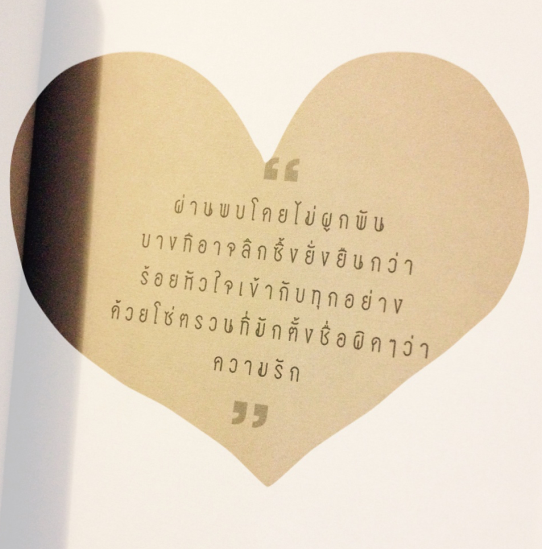 “
ผ่านพบโดยไม่ผูกพัน
บางทีอาจลึกซึ้งยั่งยืนกว่า
ร้อยหัวใจเข้ากับทุกอย่าง
ด้วยโซ่ตรวนที่มักตั้งชื่อผิดๆว่า
ความรัก
”